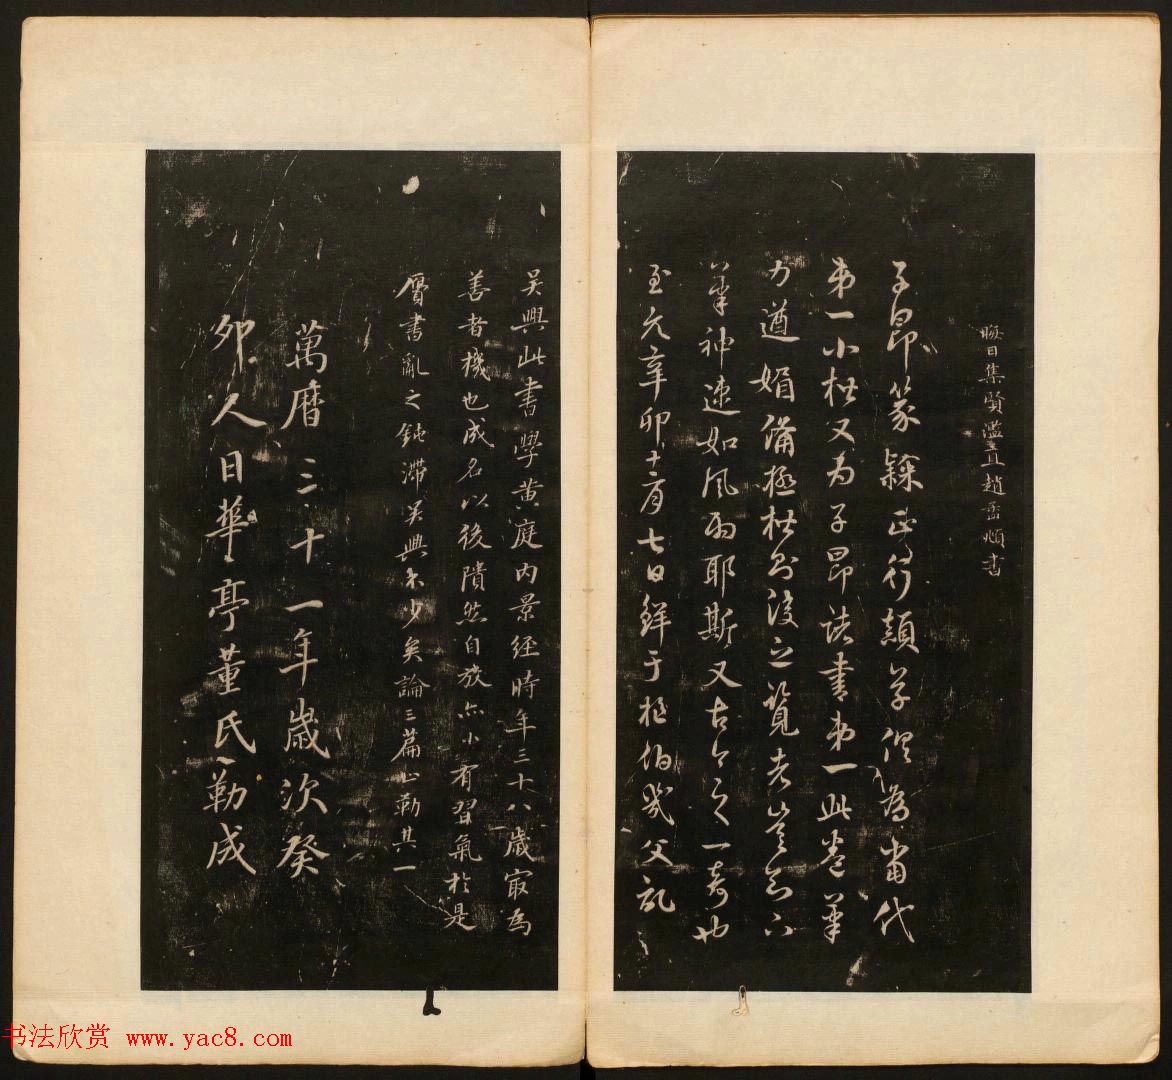 晦日集賢濫直趙孟頫書
子昂篆隸正行顛草俱為當代
弟一小楷又为子昂諸書弟一此卷筆
力遒媚備極楷則後之覽者豈知下
筆神速如風雨耶斯又古今之一奇也
至元辛卯十二月七日鮮于樞伯幾父記
吳興此書學黃庭內景經時年三十八歲㝡為
善者機也成名以後隤然自放亦小有習氣於是
贗書亂之鈍滯吳興不少矣論三篇止勒其一
萬曆三十一年歲次癸
卯人日華亭董氏勒成
书法欣赏 www.yac8.com